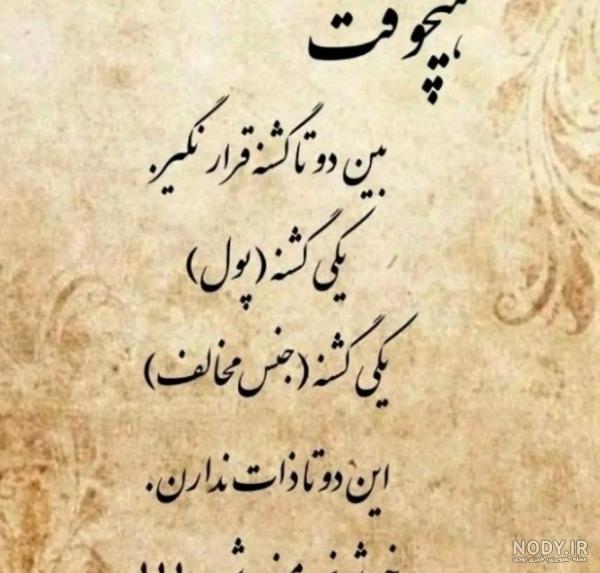 هیچوقت
بین دو تا گشنه قرار نگیر.
یکی گشنه (پول)
یکی گشنه (جنس مخالف)
این دو تا ذات ندارن.
NODY.IR